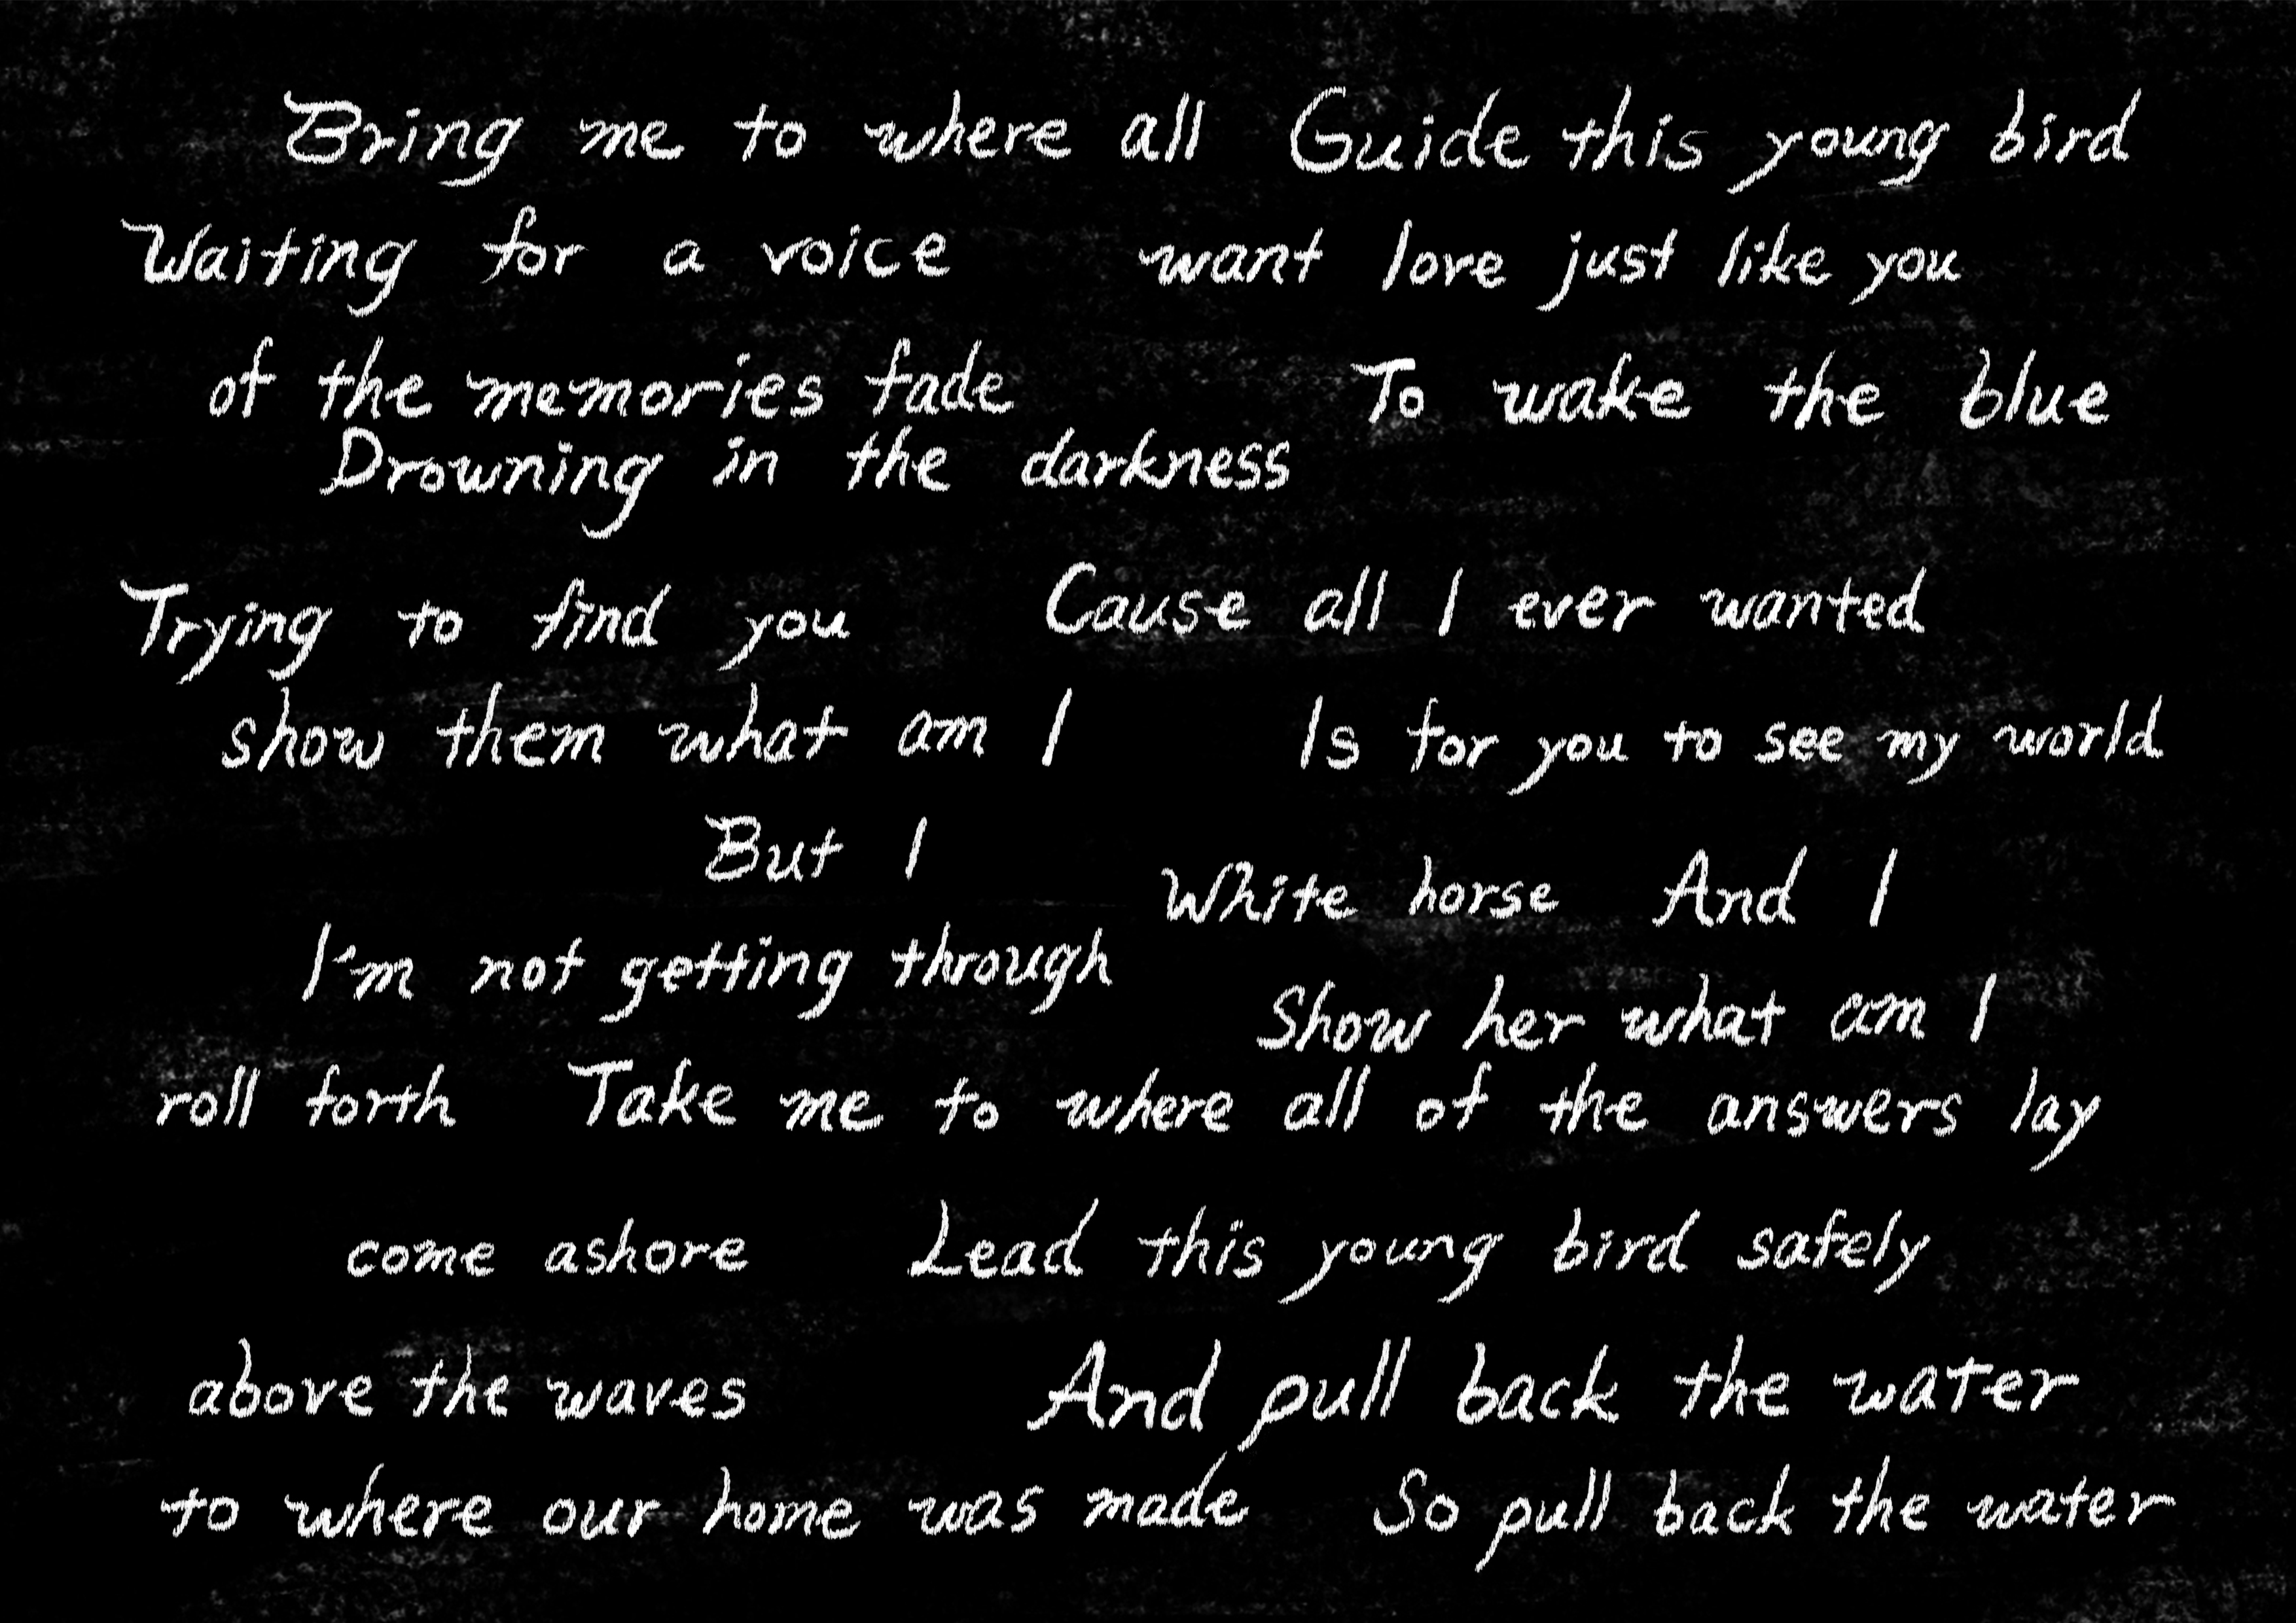 Bring me to where all Guide this young bird
Waiting for a voice want love just like you
of the memories fade To wake the blue
Drowning in the darkness
Trying to find you Cause all I ever wanted
show them what am I Is for you to see my world
But I
White horse And I
I'm not getting through
Show her what am I
roll forth Take me to where all of the answers lay
come ashore Lead this young bird safely
above the waves And pull back the water
to where our home was made So pull back the water